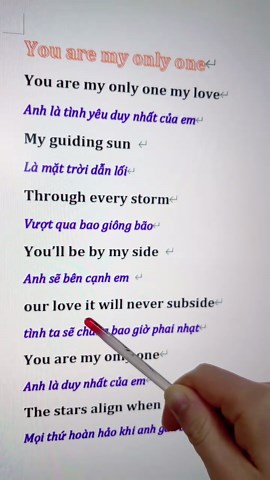 You are my only one
You are my only one my love
Anh là tình yêu duy nhất của em
My guiding sun
Là mặt trời dẫn lối
Through every storm
Vượt qua bao giông bão
You'll be by my side
Anh sẽ bên cạnh em
our love it will never subside
tình ta sẽ bao giờ phai nhạt
You are my only one
Anh là duy nhất của em
The stars align when
Mọi thứ hoàn hảo khi anh